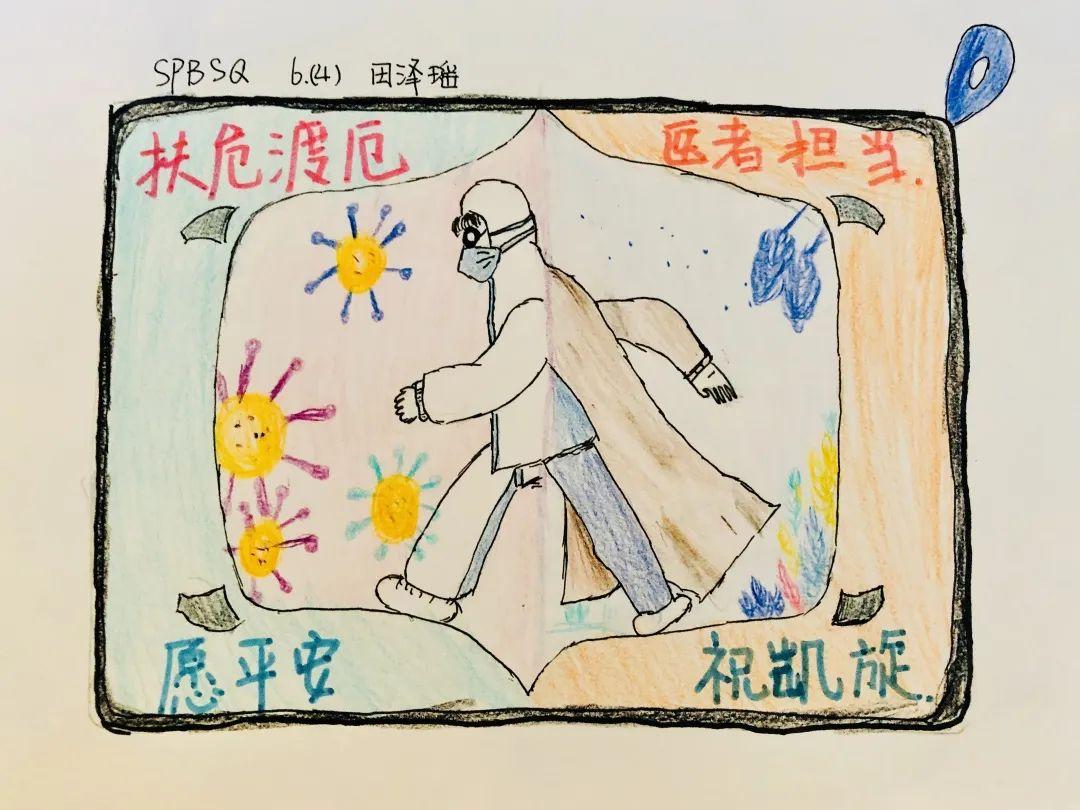 SPBSQ 6.(4) 田泽瑶
扶危渡厄
医者担当.
愿平安
祝凯旋.